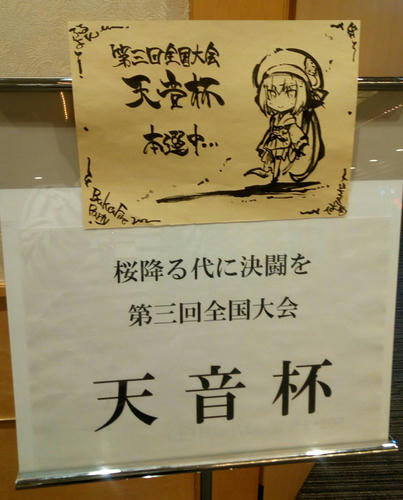 第三回全国大会
天音杯
本選中…
BakaFire
Party
桜降る代に決闘を
第三回全国大会
天音杯